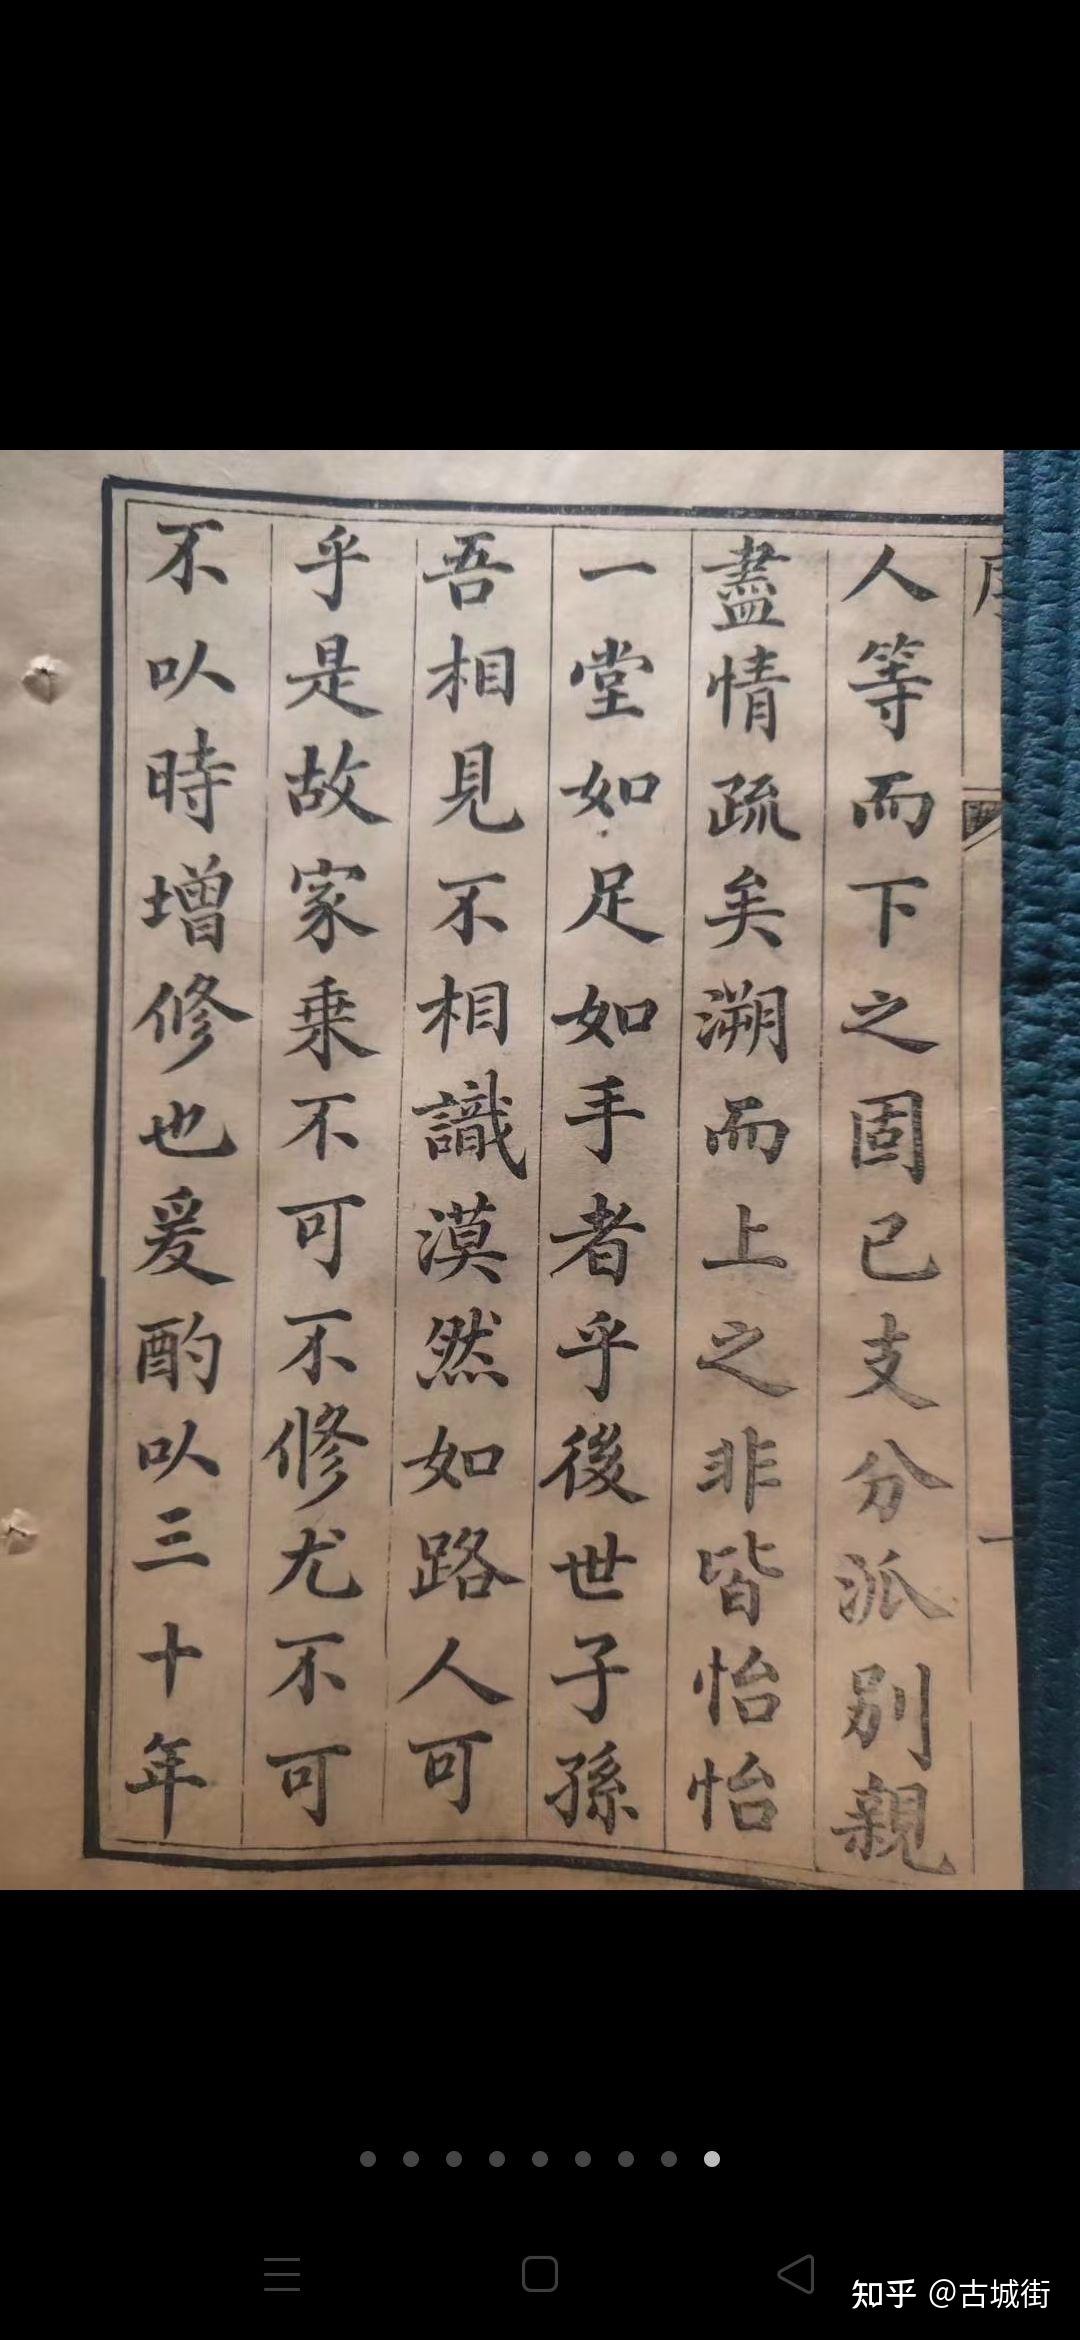 序
一
人等而下之固已支分派別親
盡情疏矣溯而上之非皆怡怡
一堂如足如手者乎後世子孫
吾相見不相識漠然如路人可
乎是故家乗不可不修尤不可
不以時增修也爰酌以三十年
知乎 @古城街